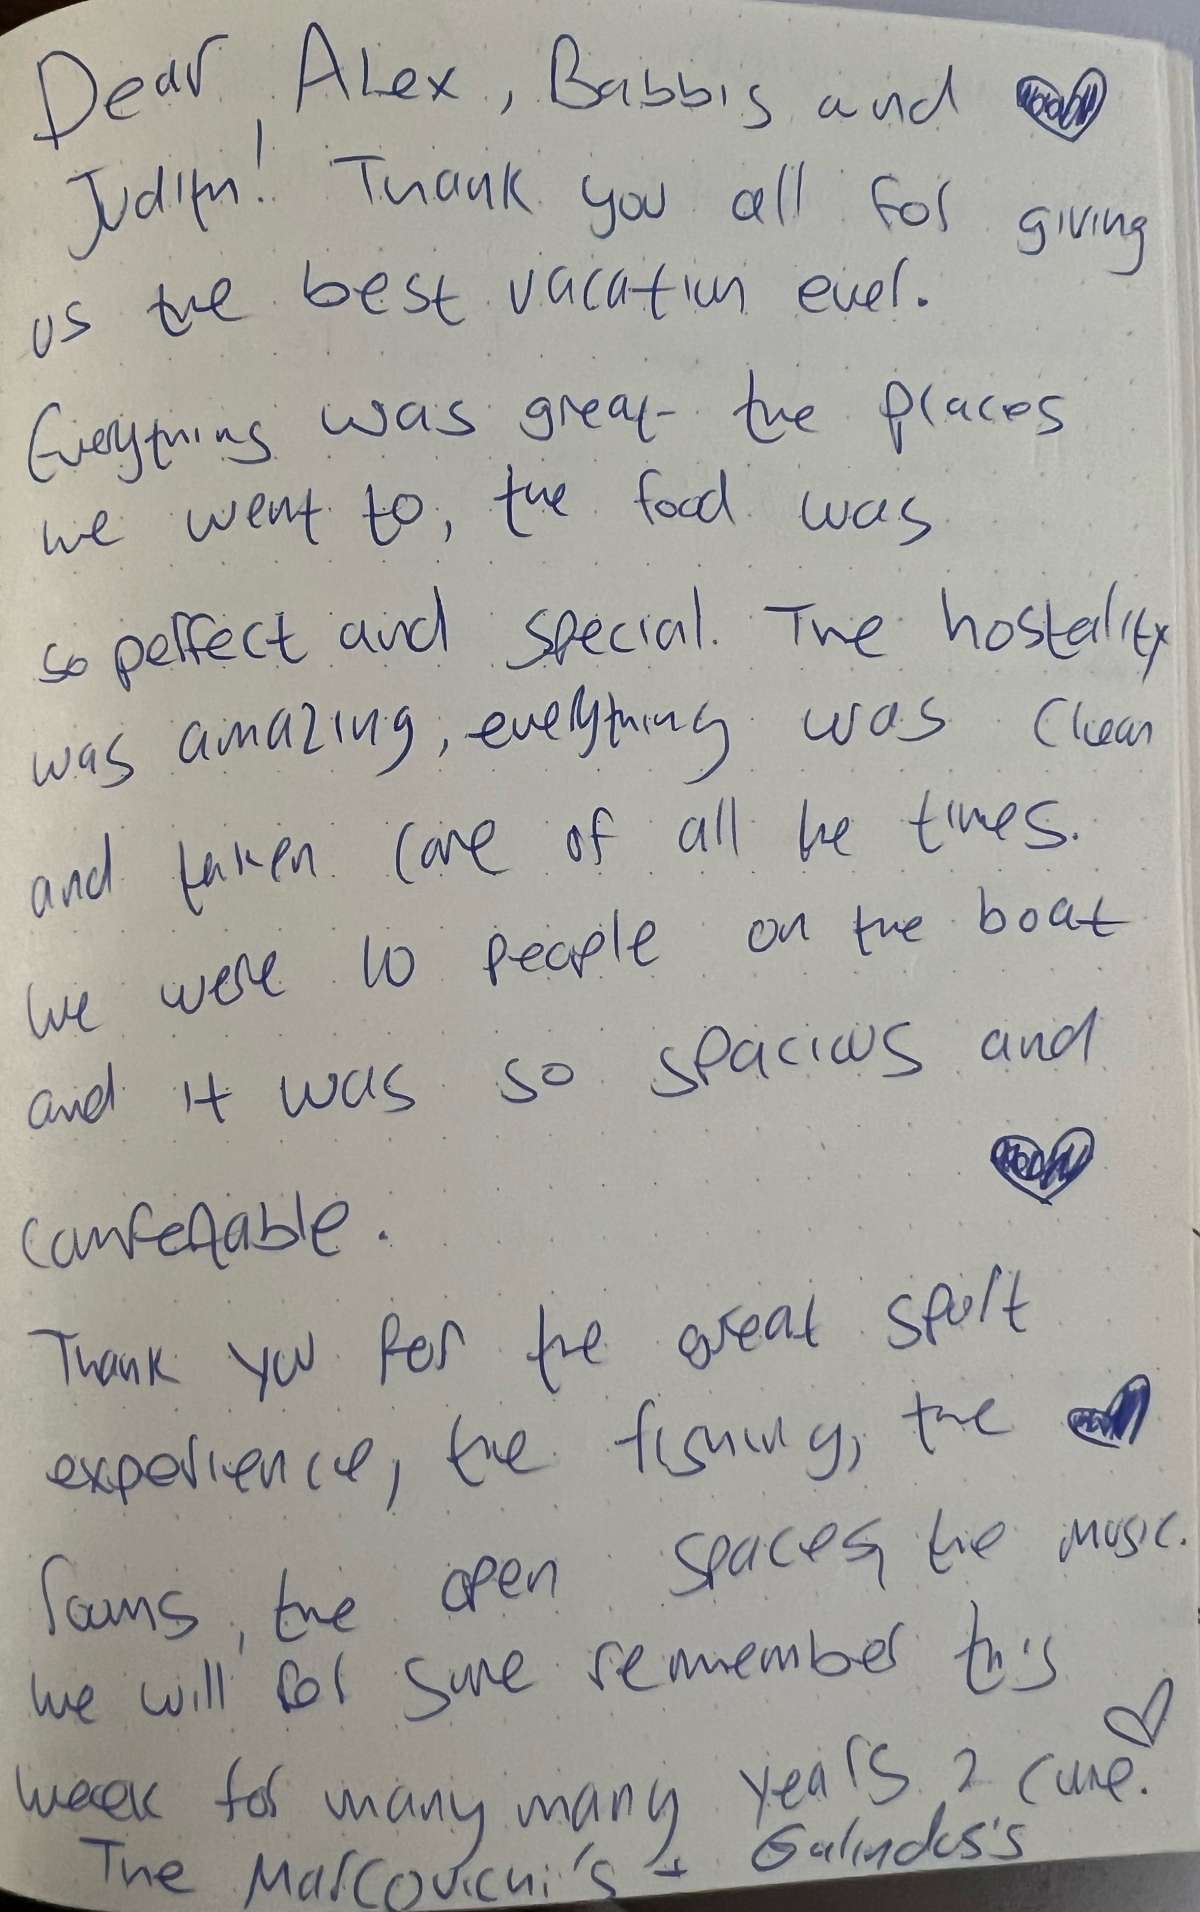 Dear Alex, Babbis and
Judith! Thank you all for giving
us the best vacation ever.
Everything was great - the places
we went to, the food was
so perfect and special. The hostality
was amazing, everything was clean
and taken care of all he times.
We were 10 people on the boat
and it was so spacious and
comfertable.
Thank you for the great sport
experience, the fishing, the
rooms, the open spaces, the music.
We will for sure remember this
week for many many years 2 come.
The Marcovichi's + Galindos's